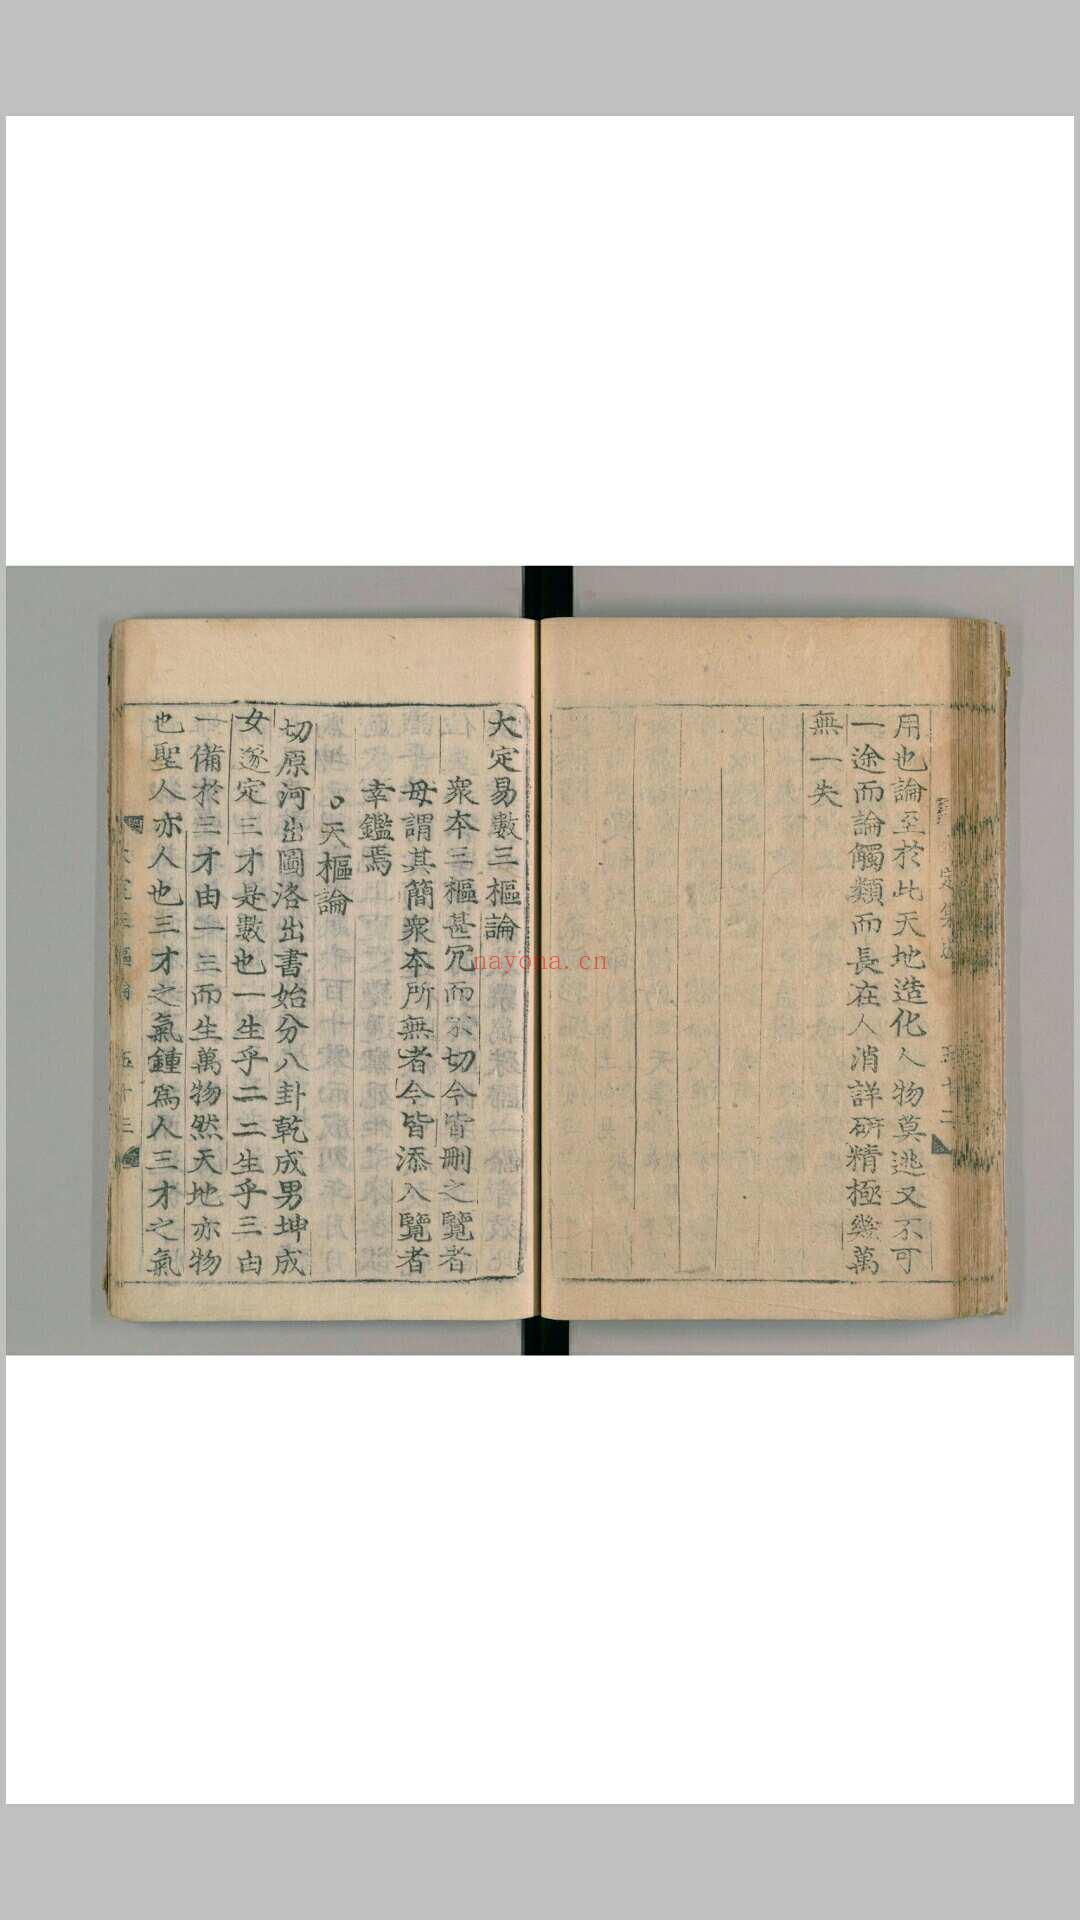 用也論至於此天地造化人物莫逃又不可
一途而論觸類而長在人消詳研精極幾萬
無一失
大定易數三樞論
衆本三樞甚冗而不切今皆刪之覽者
毋謂其簡衆本所無者今皆添入覽者
幸鑑焉
○天樞論
切原河出圖洛出書始分八卦乾成男坤成
女遂定三才是數也一生乎二二生乎三由
一備於三才由一三而生萬物然天地亦物
也聖人亦人也三才之氣鍾爲人三才之氣
五十三
nayona.cn